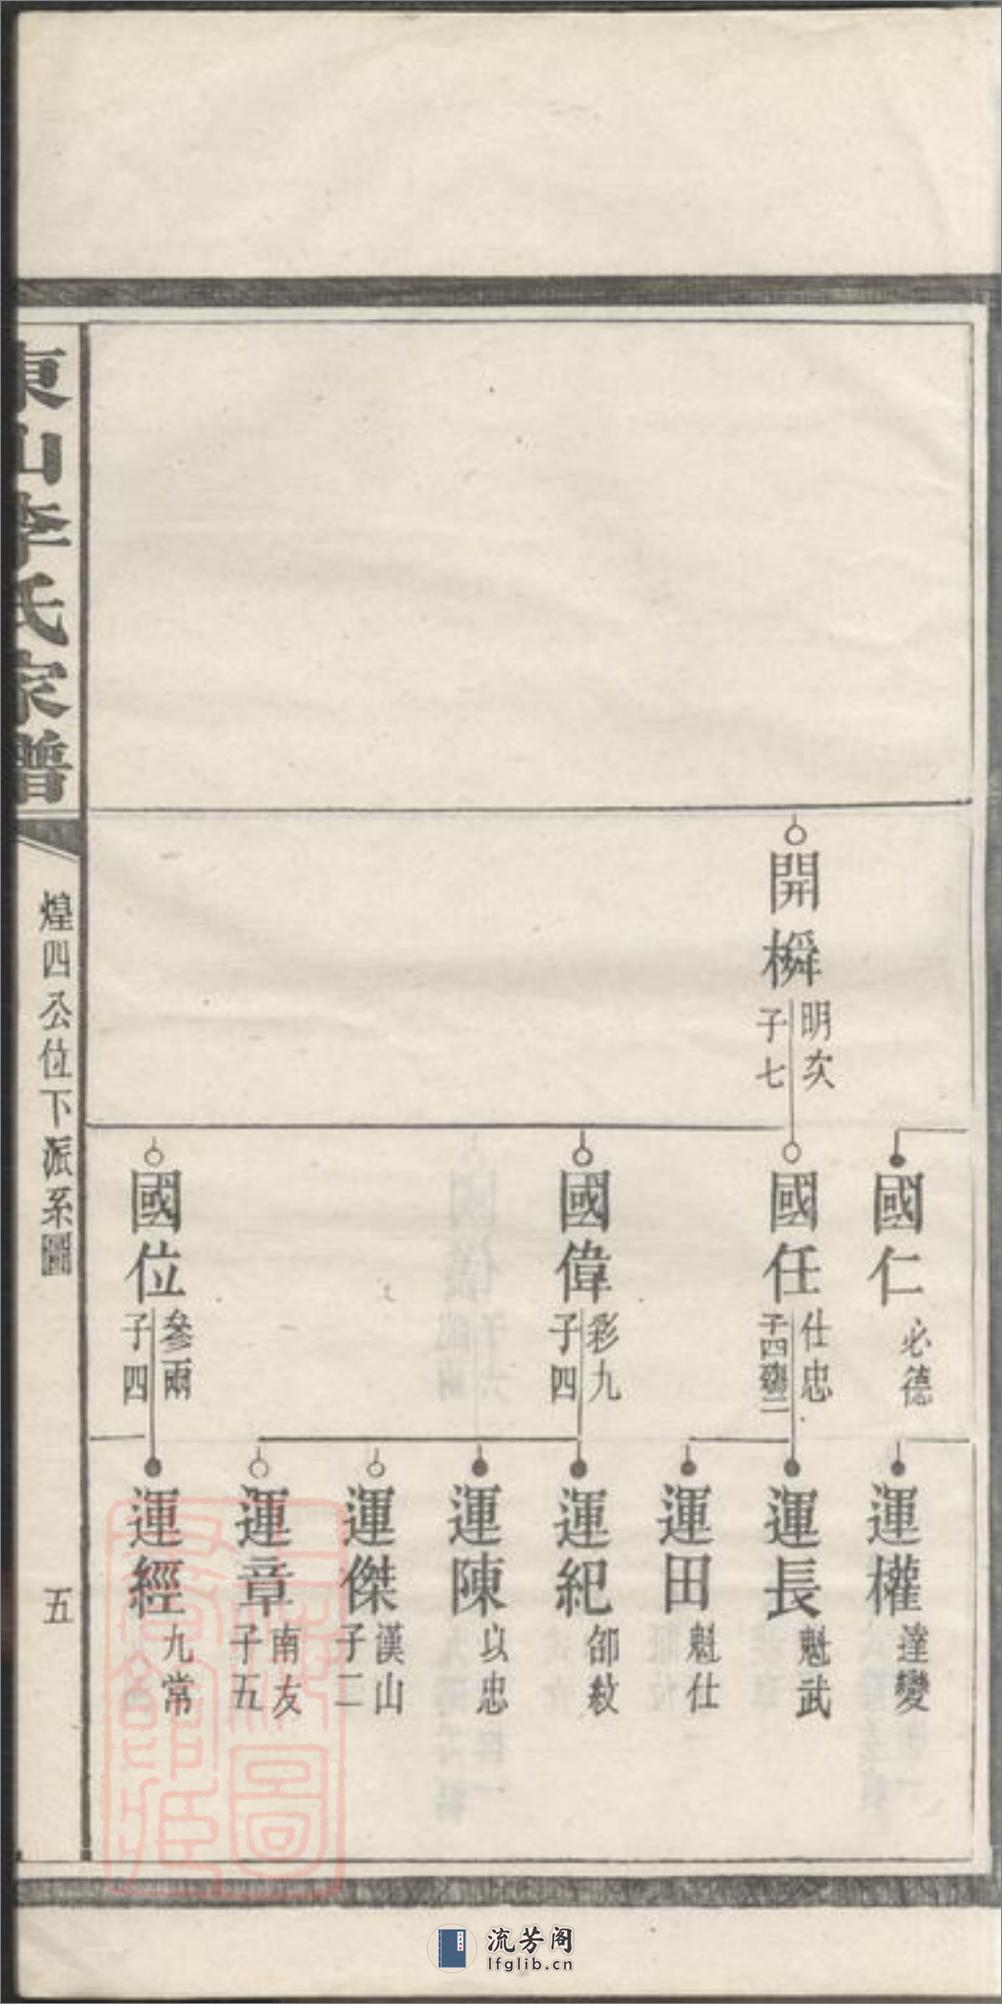 開橓
明次
子七
國仁
必德
國任
仕忠
子四殤二
國偉
彩九
子四
國位
參兩
子四
運權
達變
運長
魁武
運田
魁仕
運紀
郃敘
運陳
以忠
運傑
漢山
子二
運章
南友
子五
運經
九常
東山李氏家譜
煌四公位下派系圖
五
上海圖書館藏
流芳阁
lfglib.cn